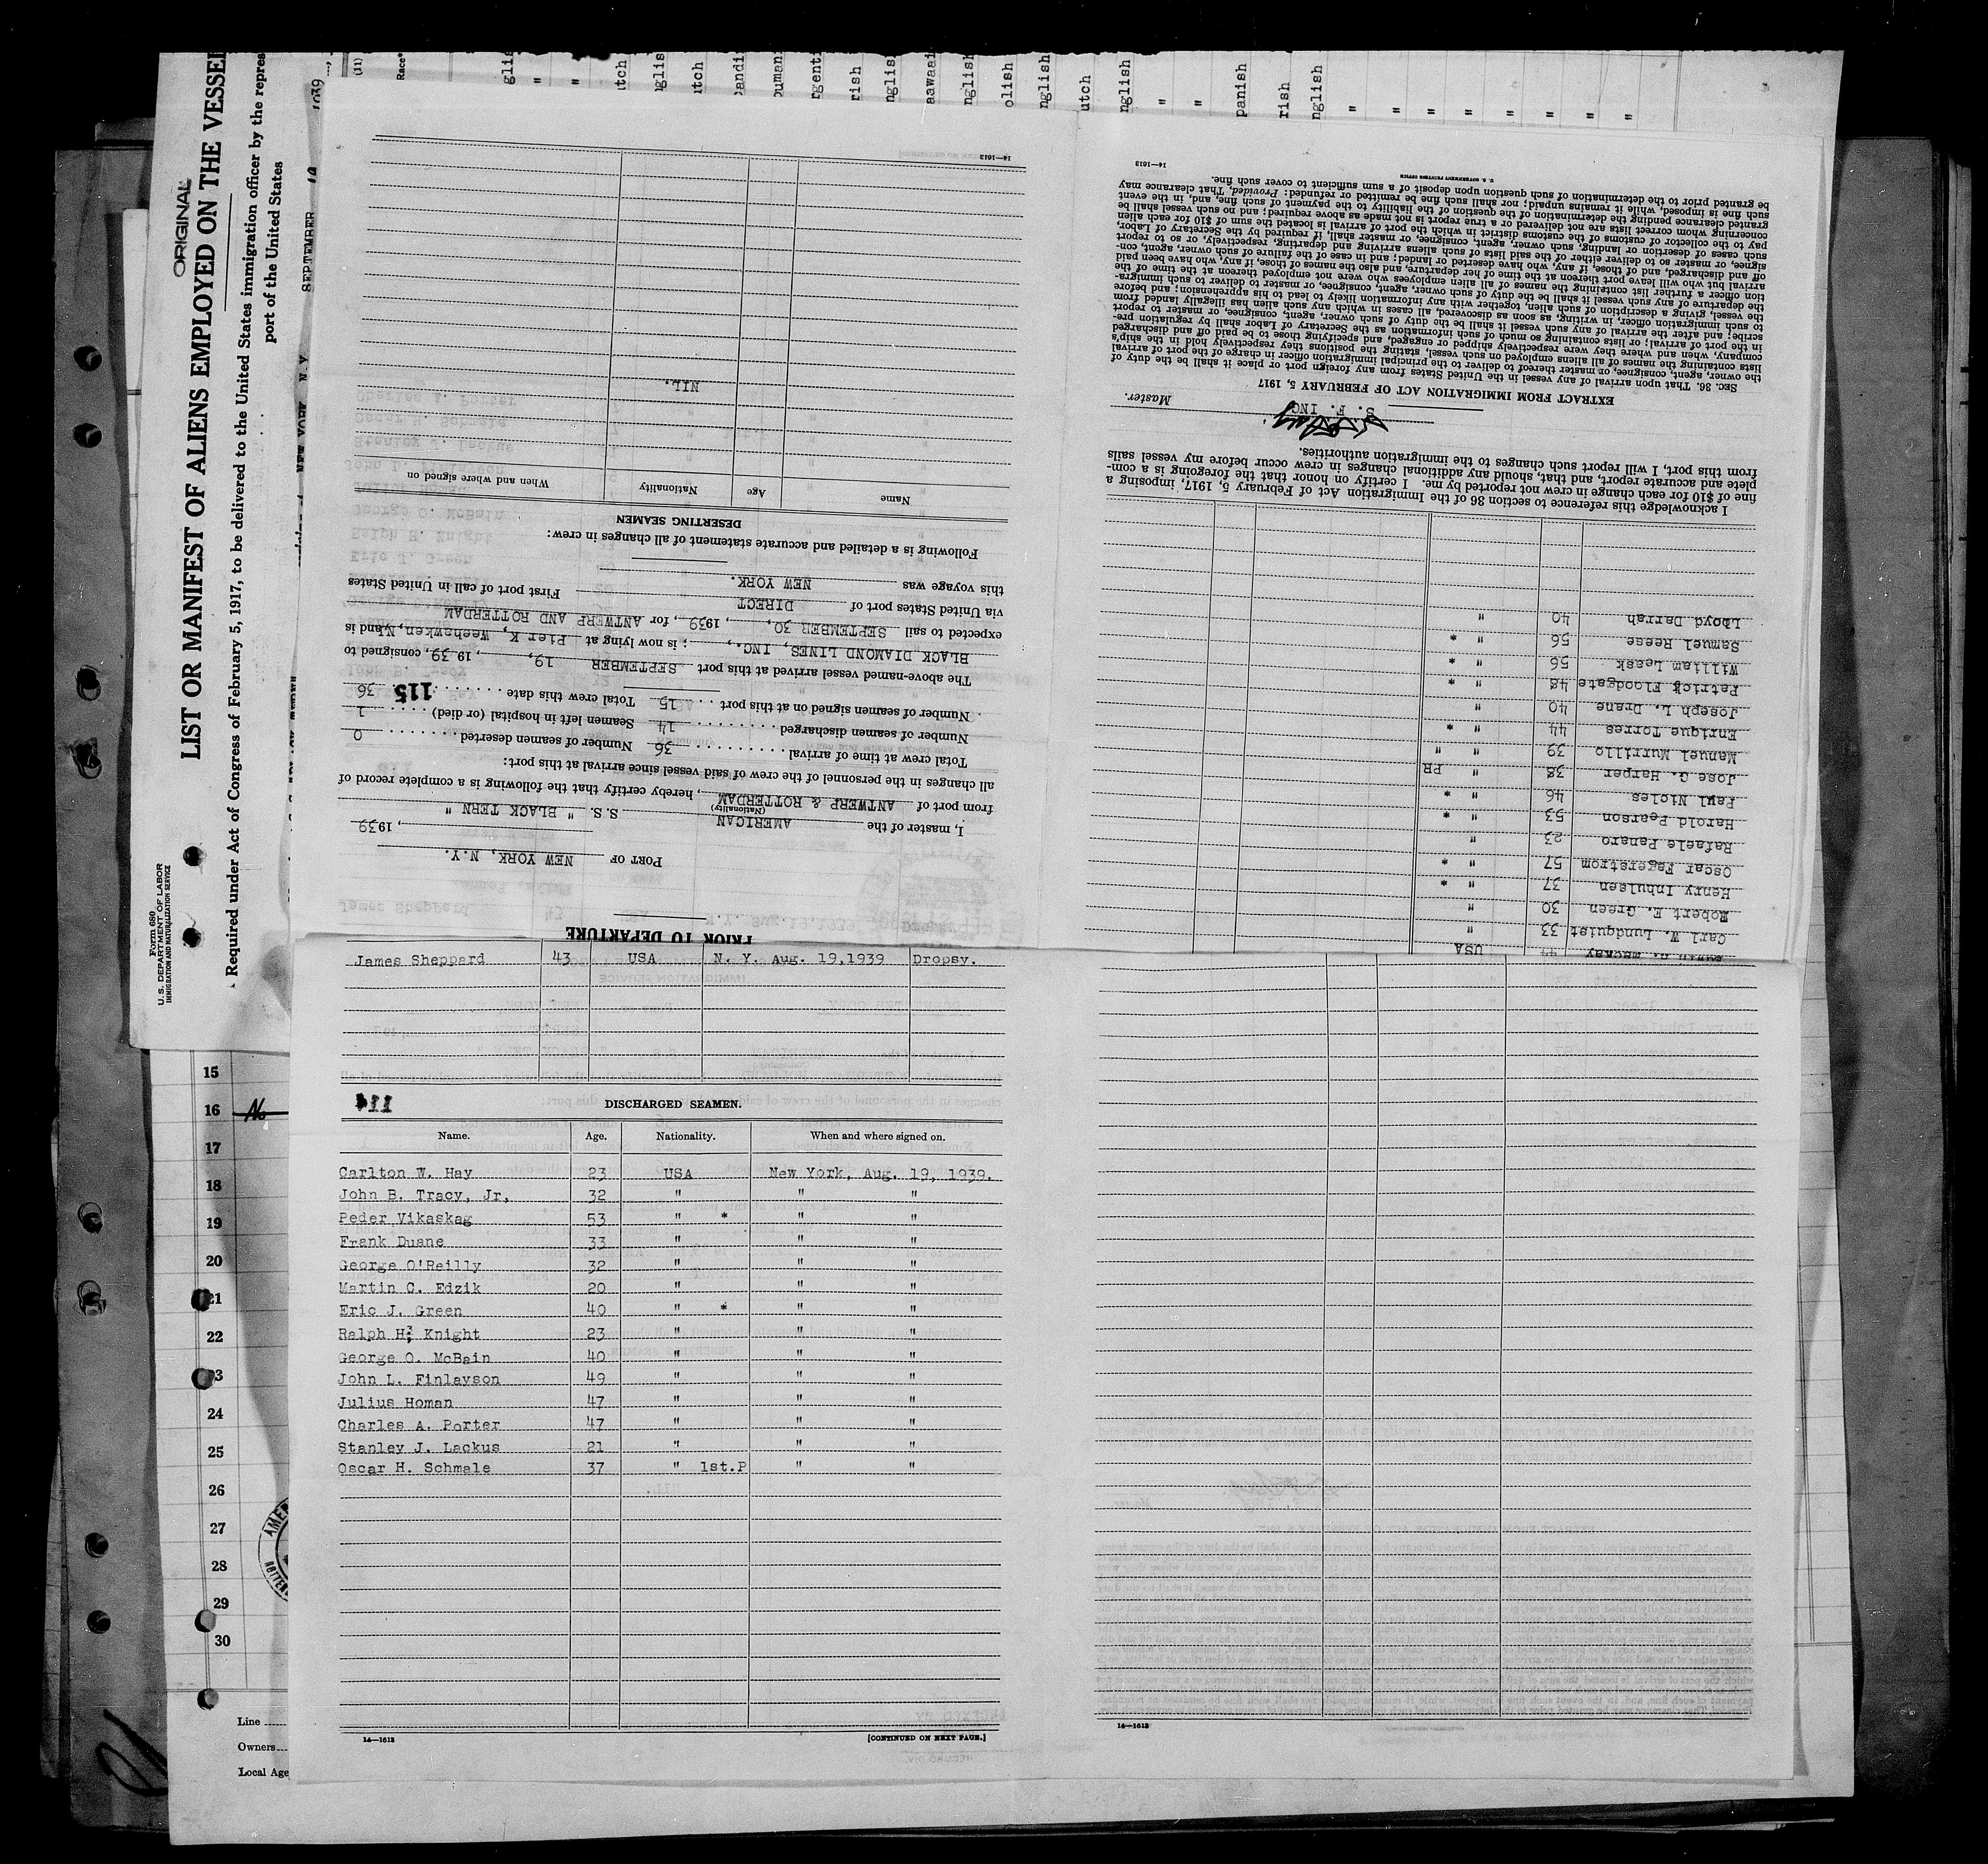 ORIGINAL
LIST OR MANIFEST OF ALIENS EMPLOYED ON THE VESSEL
Required under Act of Congress of February 5, 1917, to be delivered to the United States immigration officer by the repres
port of the United States
Form 680
U. S. DEPARTMENT OF LABOR
IMMIGRATION AND NATURALIZATION SERVICE
NEW YORK N.Y SEPTEMBER 19 1939
(11)
Race*
glis
"
"
utch
nglis
utch
candi
ouman
rgenti
rish
nglis
aawaai
nglish
olish
nglish
utch
nglish
"
"
panish
rish
nglish
"
"
"
"
"
"
"
"
PRIOR TO DEPARTURE
PORT OF NEW YORK, N.Y.
, 1939
I, master of the AMERICAN S. S. " BLACK TERN "
(Nationality)
from port of ANTWERP & ROTTERDAM, hereby certify that the following is a complete record of
all changes in the personnel of the crew of said vessel since arrival at this port:
Total crew at time of arrival 36 Number of seamen deserted 0
Number of seamen discharged 14 Seamen left in hospital (or died) 1
Number of seamen signed on at this port 15 Total crew this date 36
115
The above-named vessel arrived at this port SEPTEMBER 19, , 19 39, consigned to
BLACK DIAMOND LINES, INC., ; is now lying at Pier K, Weehawken, NJ and is
expected to sail SEPTEMBER 30, , 1939, for ANTWERP AND ROTTERDAM
via United States port of DIRECT First port of call in United States
this voyage was NEW YORK.
Following is a detailed and accurate statement of all changes in crew:
DESERTING SEAMEN
Name Age Nationality When and where signed on
NIL.
14—1613
44 USA
Carl W. Lundquist 33 "
Robert E. Green 30 "
Henry Inhulsen 37 " *
Oscar Fagerstrom 57 " *
Rafaele Panaro 23 "
Harold Pearson 53 " *
Paul Nicles 46 " *
Jose G. Harper 38 " PR
Manuel Murrillo 39 " "
Enrique Torres 44 " *
Joseph L. Drane 40 "
Patrick Floodgate 48 " *
William Leesk 56 " *
Samuel Reese 56 " *
Lloyd Darrah 40 "
I acknowledge this reference to section 36 of the Immigration Act of February 5, 1917, imposing a
fine of $10 for each change in crew not reported by me. I certify on honor that the foregoing is a com-
plete and accurate report, and that, should any additional changes in crew occur before my vessel sails
from this port, I will report such changes to the immigration authorities.
S. F. ING
Master.
EXTRACT FROM IMMIGRATION ACT OF FEBRUARY 5, 1917
SEC. 36. That upon arrival of any vessel in the United States from any foreign port or place it shall be the duty of
the owner, agent, consignee, or master thereof to deliver to the principal immigration officer in charge of the port of arrival
lists containing the names of all aliens employed on such vessel, stating the positions they respectively hold in the ship's
company, when and where they were respectively shipped or engaged, and specifying those to be paid off and discharged
in the port of arrival; or lists containing so much of such information as the Secretary of Labor shall by regulation pre-
scribe; and after the arrival of any such vessel it shall be the duty of such owner, agent, consignee, or master to report
to such immigration officer, in writing, as soon as discovered, all cases in which any such alien has illegally landed from
the vessel, giving a description of such alien, together with any information likely to lead to his apprehension; and before
the departure of any such vessel it shall be the duty of such owner, agent, consignee, or master to deliver to such immigra-
tion officer a further list containing the names of all alien employees who were not employed thereon at the time of the
arrival but who will leave port thereon at the time of her departure, and also the names of those, if any, who have been paid
off and discharged, and of those, if any, who have deserted or landed; and in case of the failure of such owner, agent, con-
signee, or master so to deliver either of the said lists of such aliens arriving and departing, respectively, or so to report
such cases of desertion or landing, such owner, agent, consignee, or master shall, if required by the Secretary of Labor,
pay to the collector of customs of the customs district in which the port of arrival is located the sum of $10 for each alien
concerning whom correct lists are not delivered or a true report is not made as above required; and no such vessel shall be
granted clearance pending the determination of the question of the liability to the payment of such fine, and, in the event
such fine is imposed, while it remains unpaid; nor shall such fine be remitted or refunded: Provided, That clearance may
be granted prior to the determination of such question upon deposit of a sum sufficient to cover such fine.
U. S. GOVERNMENT PRINTING OFFICE
14—1613
James Sheppard 43 USA N. Y. Aug. 19,1939 Dropsy.
114
DISCHARGED SEAMEN.
Name. Age. Nationality. When and where signed on.
Carlton W. Hay 23 USA New York, Aug. 19, 1939.
John B. Tracy, Jr, 32 " " "
Peder Vikaskag 53 " * " "
Frank Duane 33 " " "
George O'Reilly 32 " " "
Martin C. Edzik 20 " " "
Eric J. Green 40 " * " "
Ralph H. Knight 23 " " "
George O. McBain 40 " " "
John L. Finlayson 49 " " "
Julius Homan 47 " " "
Charles A. Porter 47 " " "
Stanley J. Lackus 21 " " "
Oscar H. Schmale 37 " 1st.P " "
14—1613
[CONTINUED ON NEXT PAGE.]
14—1613
15
16 No
17
18
19
20
21
22
23
24
25
26
27
28
29
30
Line
Owners
Local Age